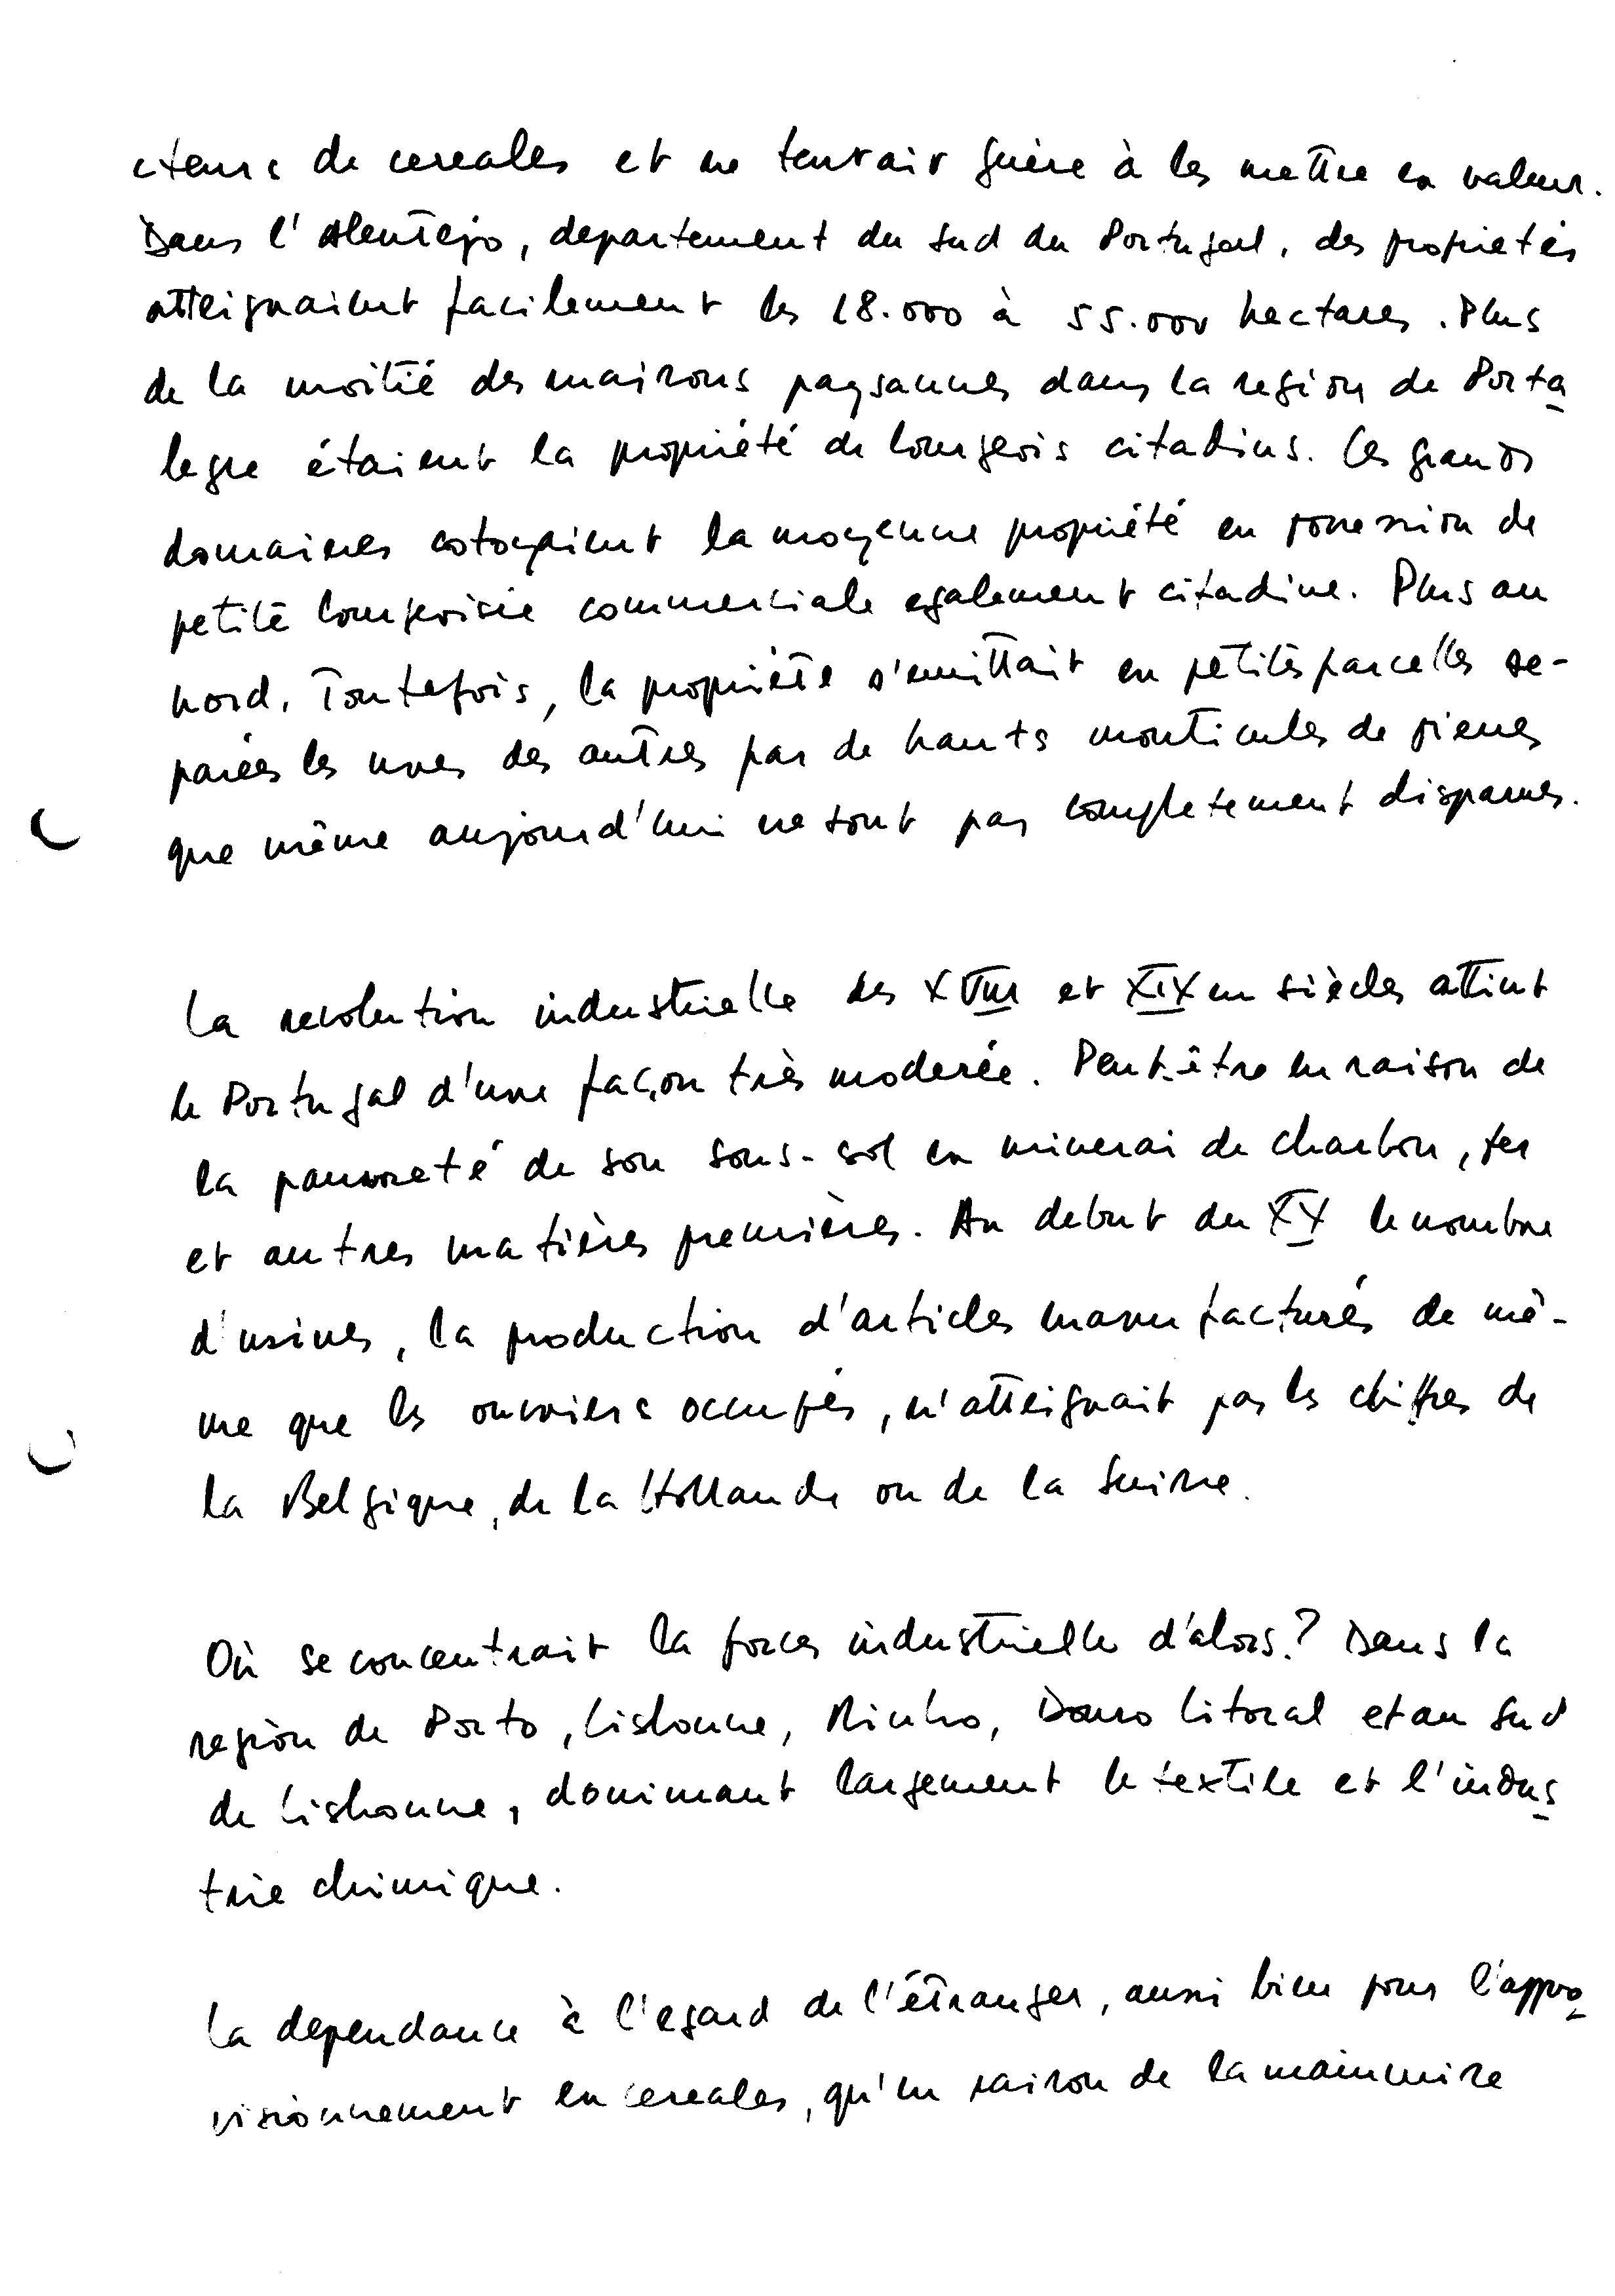 cteurs de cereales et ne tentait guère à les mettre en valeur.
Dans l'Alentejo, departement du sud du Portugal, des proprietés
atteignaient facilement les 18.000 à 55.000 hectares. Plus
de la moitié des maisons paysannes dans la region de Porta
legre étaient la propriété de bourgeois citadins. Ces grands
domaines cotoyaient la moyenne propriété en possession de
petite bourgeoisie commerciale egalement citadine. Plus au
nord, Toutefois, la propriété s'emittait en petites parcelles se-
parées les unes des autres par de hauts monticules de pierres
que même aujourd'hui ne sont pas completement disparues.
La revolution industrielle des XVIII et XIXem siècles attint
le Portugal d'une façon très moderée. Peut-être en raison de
la pauvreté de son sous-sol en minerai de charbon, fer
et autres matières premières. Au debut du XX le nombre
d'usines, la production d'articles manufacturés de mê-
me que les ouvriers occupés, n'atteignait pas les chiffres de
la Belgique, de la Hollande ou de la Suisse.
Où se concentrait la forces industrielle d'alors? Dans la
region de Porto, Lisbonne, Minho, Douro litoral et au Sud
de Lisbonne, dominant largement le textile et l'indus
trie chimique.
La dependance à l'egard de l'étranger, aussi bien pour l'appro
visionnement en cereales, qu'en raison de la mainmise